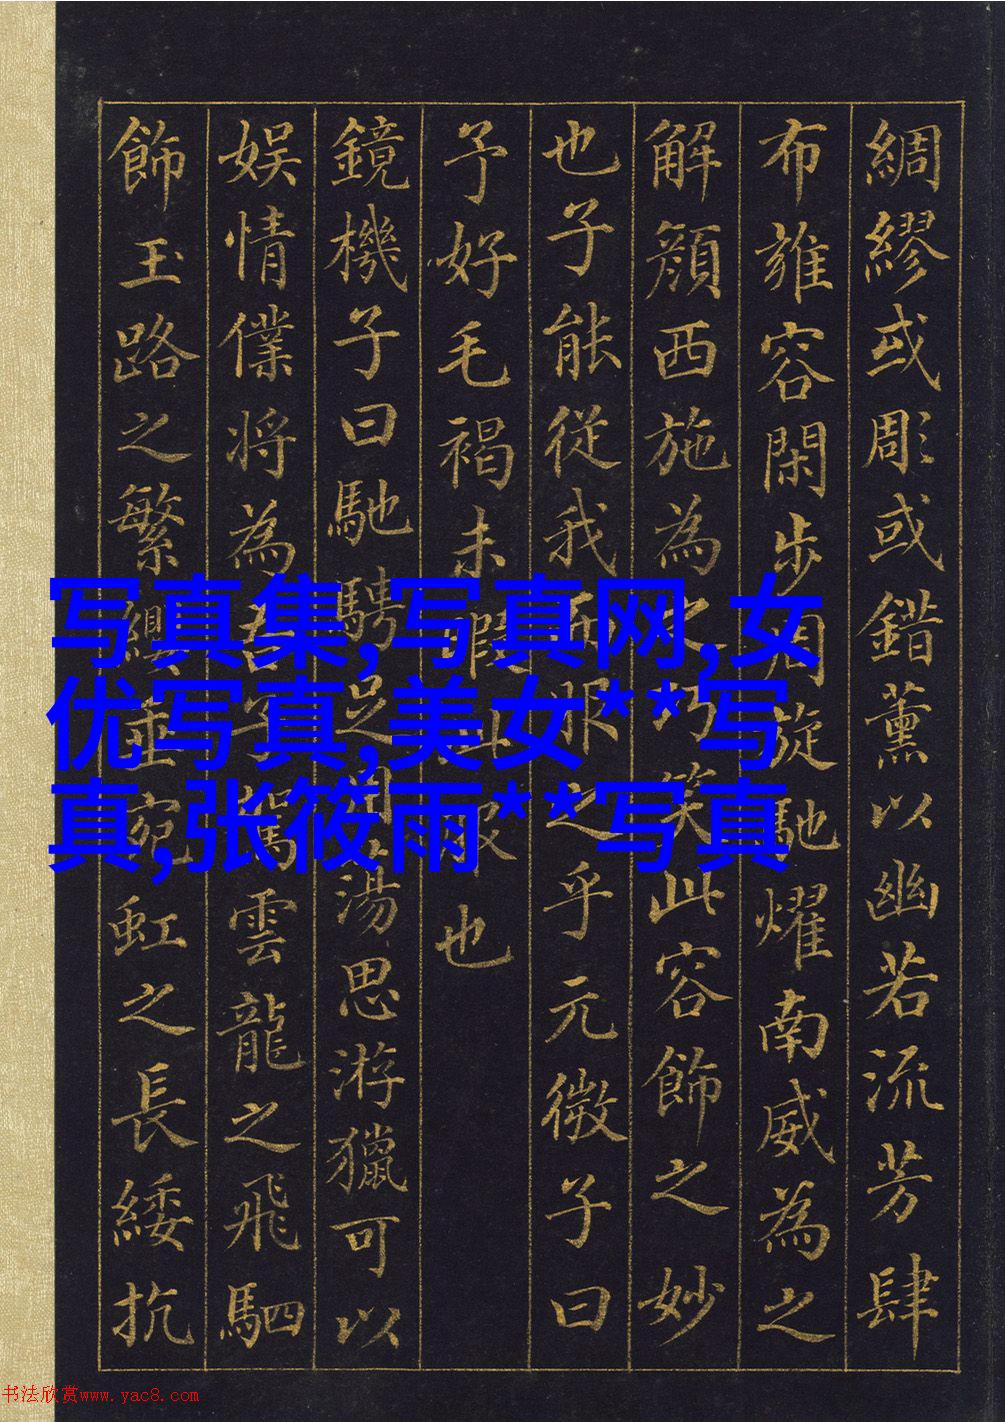 綢繆或彫或錯薰以幽若流芳肆
布雍容閑步周旋馳燿南威為之
解顏西施為之巧笑此容飾之妙
也子能從我而服之乎元微子曰
予好毛褐未暇此服也
鏡機子曰馳騁足用蕩思游獵可以
娛情僕將為吾子駕雲龍之飛駟
飾玉路之繁纓垂宛虹之長綏抗
写真集,写真网,女
优写真,美女**写
真,张筱雨**写真
书法欣赏www.yac8.com